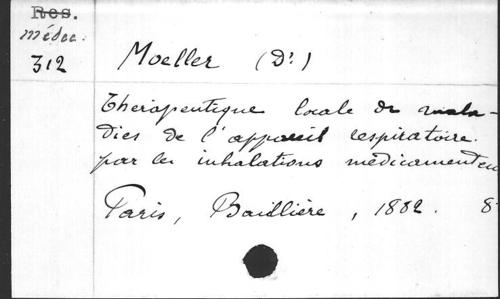 Res.
médec.
312
Moeller (Dr)
Thérapeutique locale des mala-
dies de l'appareil respiratoire
par les inhalations médicamenteu
Paris, Baillière, 1882. 8